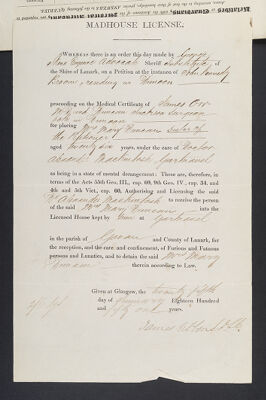 MADHOUSE LICENSE.
WHEREAS there is an order this day made by George
Advocate Sheriff Substitute of
the Shire of Lanark, on a Petition at the instance of John
residing in Dunoon
proceeding on the Medical Certificate of James
Surgeon
in Dunoon
for placing Mrs Mary Duncan Sister of
the Petitioner
aged twenty six years, under the care of Doctor
Mackintosh, Gartnavel
as being in a state of mental derangement: These are, therefore, in
terms of the Acts 55th Geo. III., cap. 69, 9th Geo. IV., cap. 34, and
4th and 5th Vict., cap. 60, Authorising and Licensing the said
Dr Mackintosh to receive the person
of the said Mrs Mary Duncan into the
Licensed House kept by him at Gartnavel
in the parish of Govan and County of Lanark, for
the reception, and for the care and confinement, of Furious and Fatuous
persons and Lunatics, and to detain the said Mrs Mary
Duncan therein according to Law.
Given at Glasgow, the twenty fifth
day of January Eighteen Hundred
and fifty one years.